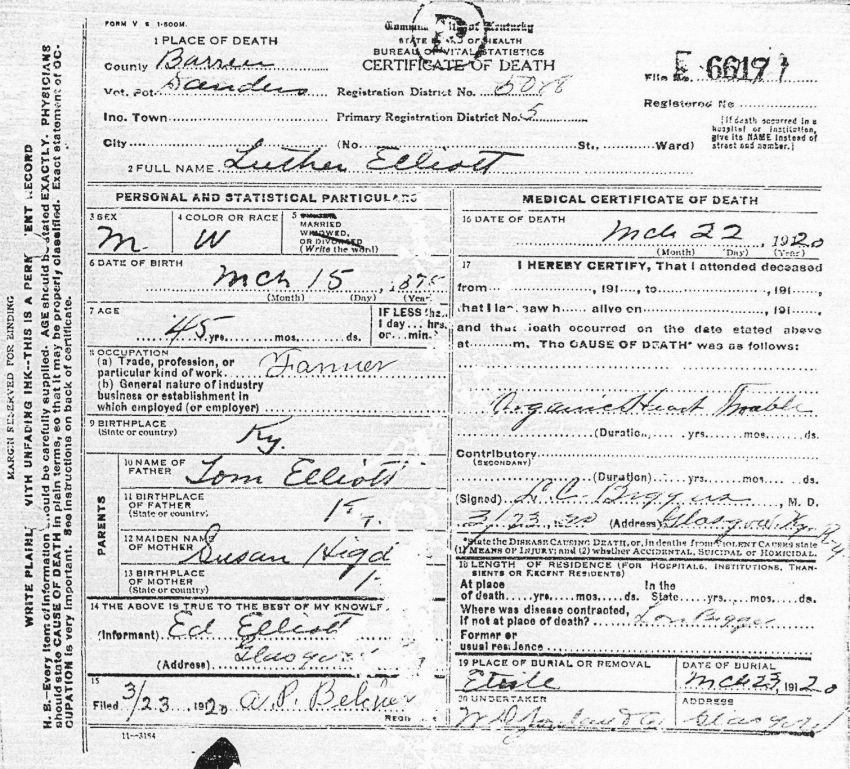 FORM V S 1-500M.
Commonwealth of Kentucky
STATE BOARD OF HEALTH
BUREAU OF VITAL STATISTICS
CERTIFICATE OF DEATH
1 PLACE OF DEATH
County Barren
Vot. Pct. Sanders Registration District No.
File No. 6617
Registered No
Inc. Town Primary Registration District No. 5
[If death occurred in a hospital or institution, give its NAME instead of street and number.]
City (No. St., Ward)
2 FULL NAME Luther Elliott
PERSONAL AND STATISTICAL PARTICULARS
3 SEX M
4 COLOR OR RACE W
5 MARRIED
WIDOWED,
OR DIVORCED
(Write the word)
6 DATE OF BIRTH
Mch 15, 1875
(Month) (Day) (Year)
7 AGE
45 yrs. mos. ds.
IF LESS than
1 day... hrs.
or... min.?
8 OCCUPATION
(a) Trade, profession, or
particular kind of work Farmer
(b) General nature of industry
business or establishment in
which employed (or employer)
9 BIRTHPLACE
(State or country) Ky.
PARENTS
10 NAME OF
FATHER Tom Elliott
11 BIRTHPLACE
OF FATHER
(State or country) Ky.
12 MAIDEN NAME
OF MOTHER Susan
13 BIRTHPLACE
OF MOTHER
(State or country)
14 THE ABOVE IS TRUE TO THE BEST OF MY KNOWL
(Informant) Ed Elliott
(Address) Glasgow
15
Filed 3/23 1920 A. P.
11-3184
MEDICAL CERTIFICATE OF DEATH
16 DATE OF DEATH
Mch 22, 1920
(Month) (Day) (Year)
17 I HEREBY CERTIFY, That I attended deceased
from , 191 , to , 191 ,
that I last saw h alive on , 191 ,
and that death occurred on the date stated above
at m. The CAUSE OF DEATH* was as follows:
Organic Heart Trouble
(Duration, yrs. mos. ds.
Contributory
(SECONDARY)
(Duration) yrs. mos. ds.
(Signed) L. C. Biggers, M. D.
3/23, 1920 (Address) Glasgow Ky R-4
*State the DISEASE CAUSING DEATH, or, in deaths from VIOLENT CAUSES state
(1) MEANS OF INJURY; and (2) whether ACCIDENTAL, SUICIDAL OR HOMICIDAL.
18 LENGTH OF RESIDENCE (FOR HOSPITALS, INSTITUTIONS, TRAN-
SIENTS OR RECENT RESIDENTS)
At place In the
of death yrs. mos. ds. State yrs. mos. ds.
Where was disease contracted,
if not at place of death?
Former or
usual residence
19 PLACE OF BURIAL OR REMOVAL
Etoile
DATE OF BURIAL
Mch 23, 1920
20 UNDERTAKER
ADDRESS
Glasgow
MARGIN RESERVED FOR BINDING
WRITE PLAINLY WITH UNFADING INK--THIS IS A PERMANENT RECORD
N. B.--Every item of information should be carefully supplied. AGE should be stated EXACTLY. PHYSICIANS
should state CAUSE OF DEATH in plain terms, so that it may be properly classified. Exact statement of OC-
CUPATION is very important. See instructions on back of certificate.